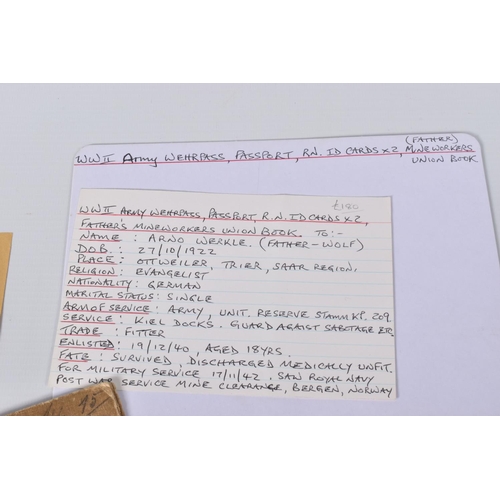 (FATHER)
WWII Army WEHRPASS, PASSPORT, R.N. ID CARDS x2, MINEWORKERS
UNION BOOK
£180
WWII ARMY WEHRPASS, PASSPORT, R.N. ID CARDS x 2,
FATHER'S MINEWORKERS UNION BOOK. TO:-
NAME : ARNO WERKLE. (FATHER-WOLF)
D.O.B. : 27/10/1922
PLACE: OTTWEILER, TRIER, SAAR REGION,
RELIGION : EVANGELIST
NATIONALITY: GERMAN
MARITAL STATUS: SINGLE
ARM OF SERVICE: ARMY, UNIT. RESERVE STAMM KP. 209
SERVICE: KIEL DOCKS. GUARD AGAIST SABOTAGE ETC.
TRADE : FITTER
ENLISTED: 19/12/40, AGED 18YRS.
FATE: SURVIVED, DISCHARGED MEDICALLY UNFIT.
FOR MILITARY SERVICE 17/11/42. SAN ROYAL NAVY
POST WAR SERVICE MINE CLEARANCE, BERGEN, NORWAY